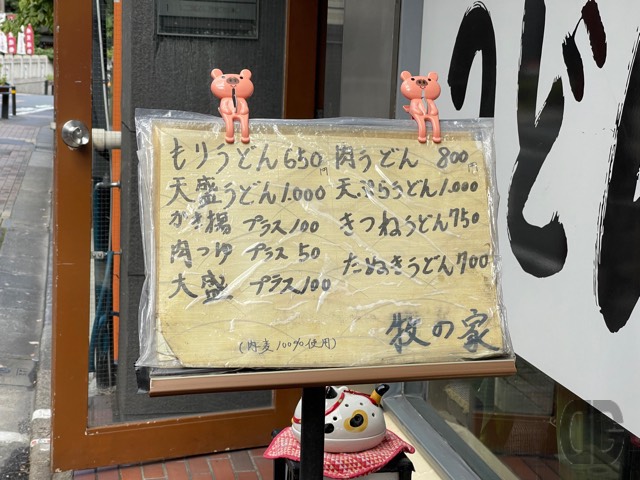 もりうどん 650円
天盛うどん 1.000
かき揚 プラス100
肉つゆ プラス 50
大盛 プラス100
肉うどん 800円
天ぷらうどん 1.000
きつねうどん 750
たぬきうどん 700
(内麦100%使用)
牧の家
うどん